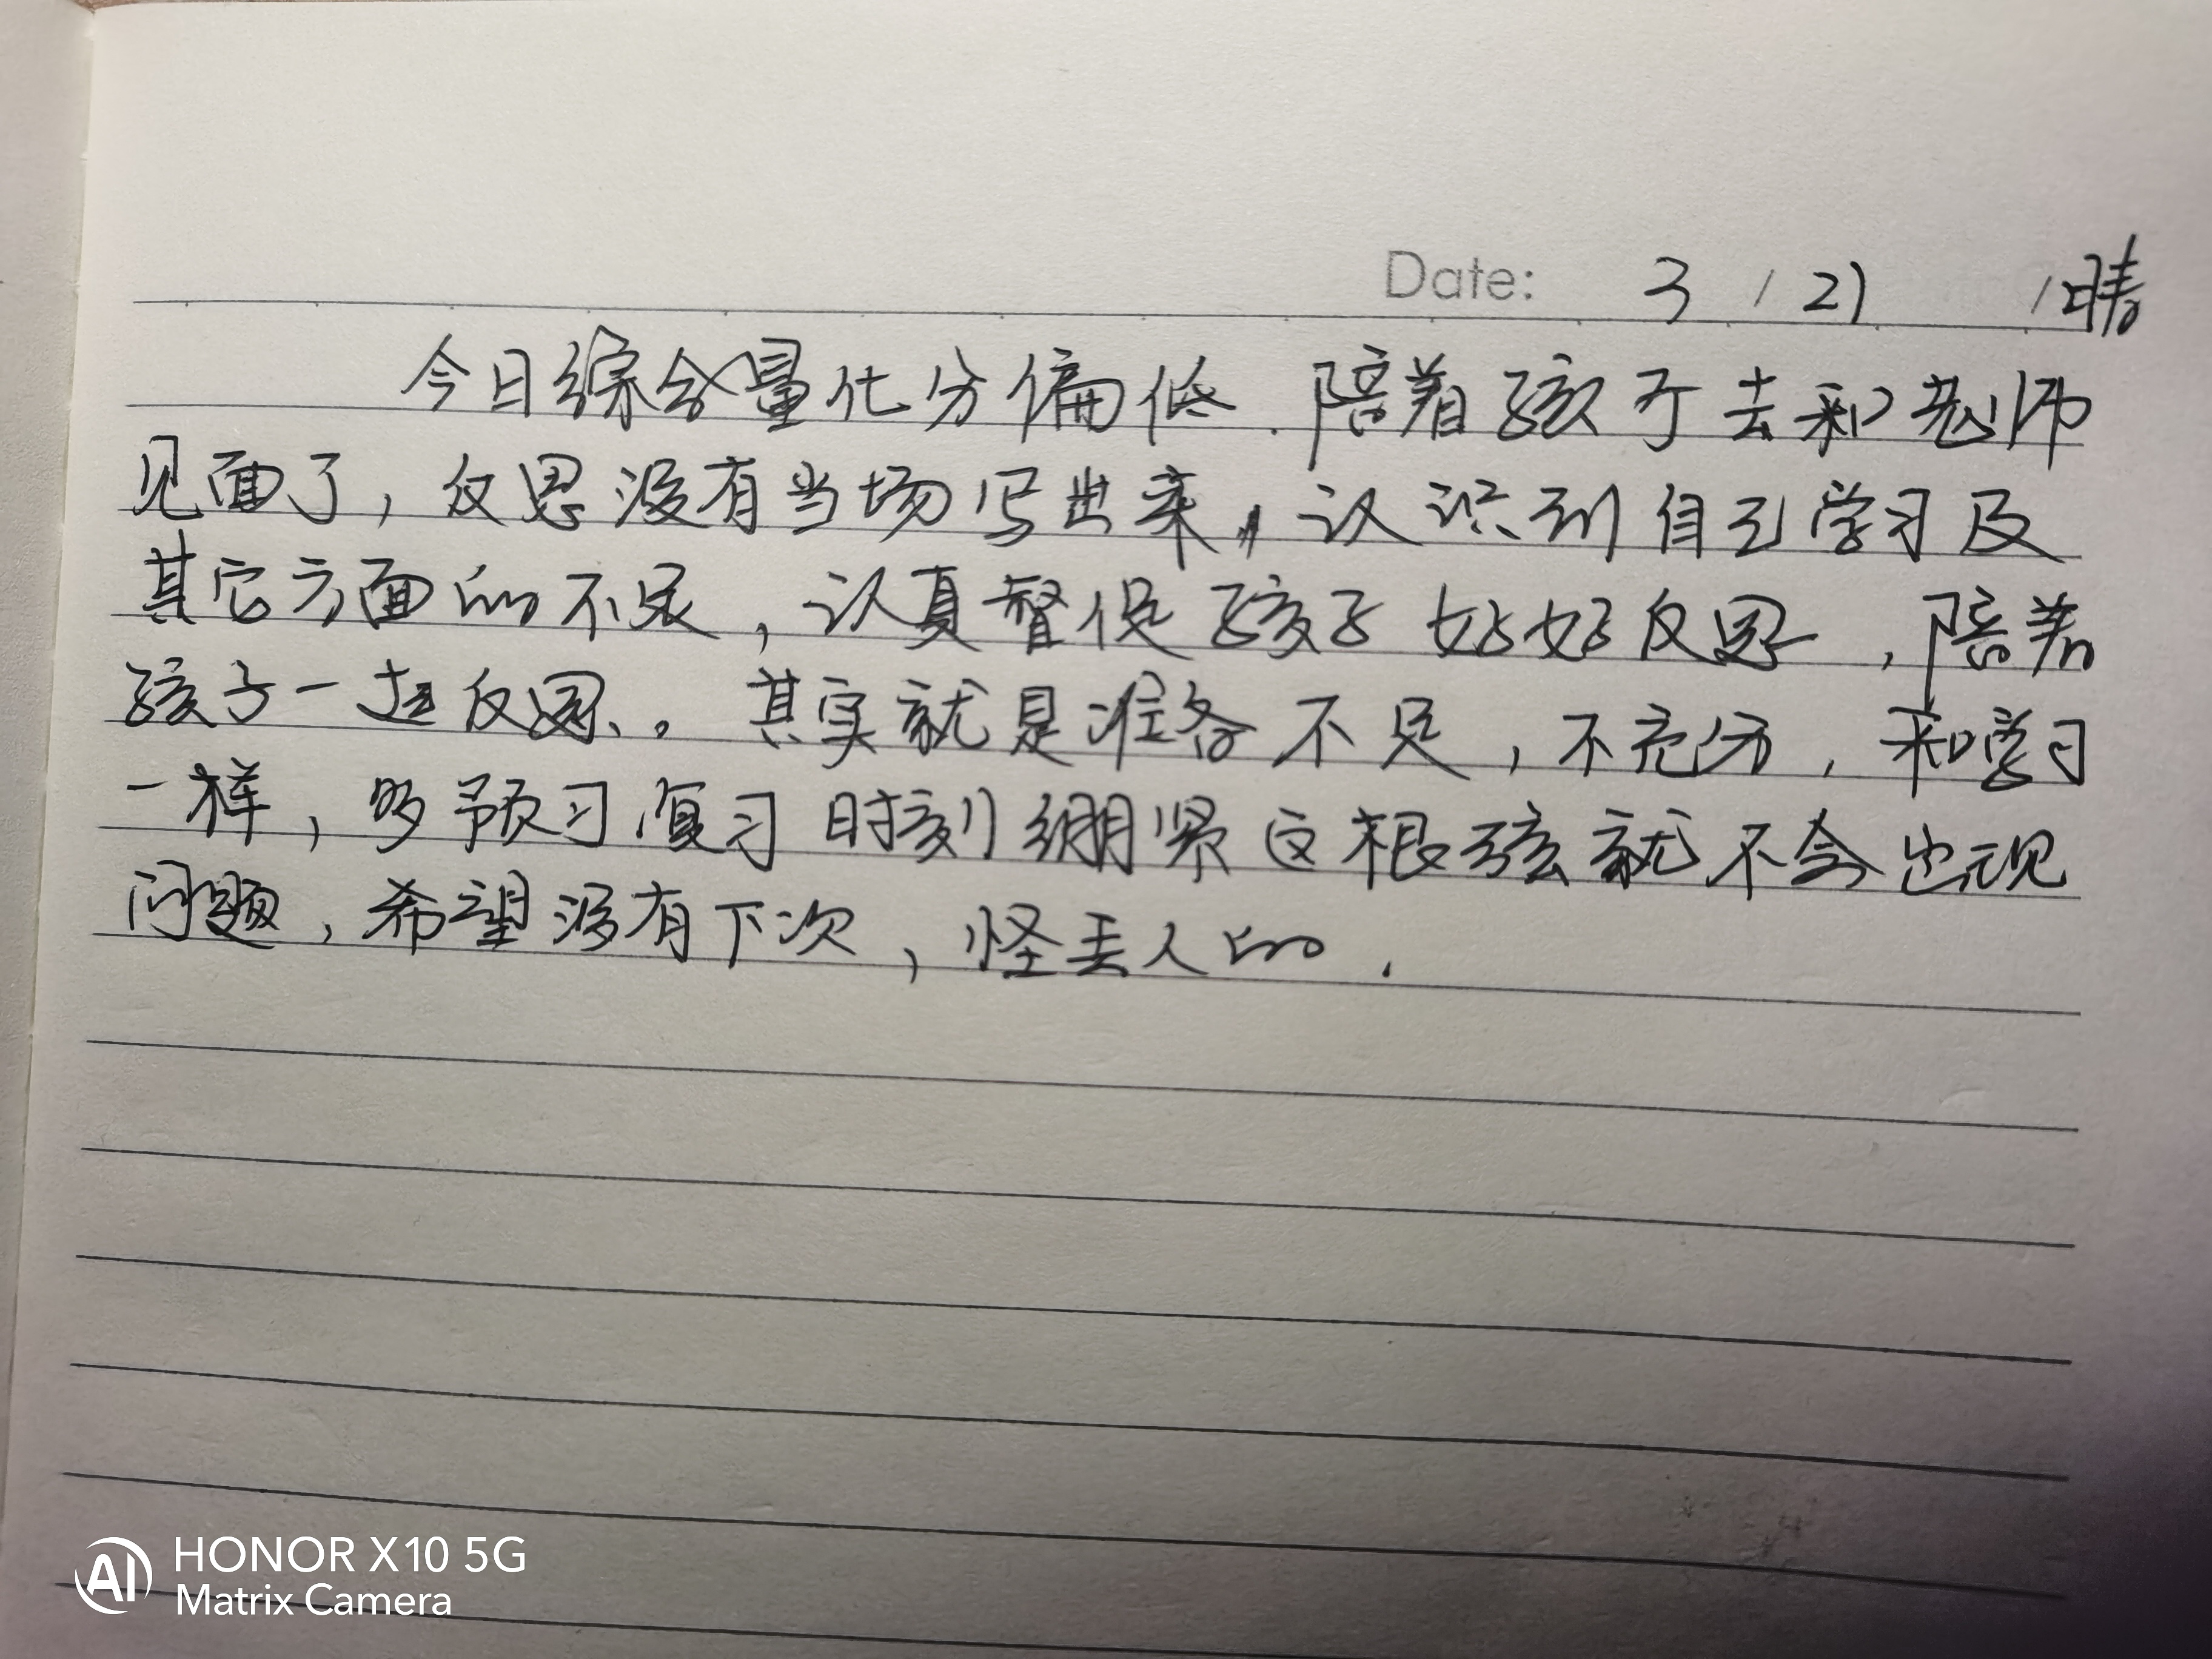 Date: 3 / 21 / 晴
今日综合量化分偏低.陪着孩子去和老师
见面了，反思没有当场写出来，认识到自己学习及
其它方面的不足，认真督促孩子好好反思，陪着
孩子一起反思、。其实就是准备不足，不充分，和学习
一样，多预习复习时刻绷紧这根弦就不会出现
问题，希望没有下次，怪丢人的.
HONOR X10 5G
Matrix Camera
AI